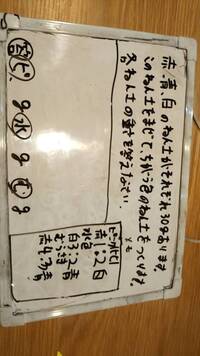 赤,青,白のねん土がそれぞれ30gあります。
このねん土をまぜて、ちがう色のねん土をつくります。
各ねん土の重さを答えなさい。
メモ
赤1:2白
水色
白3:2青
赤4:3青
答 ピ g 水 g む g